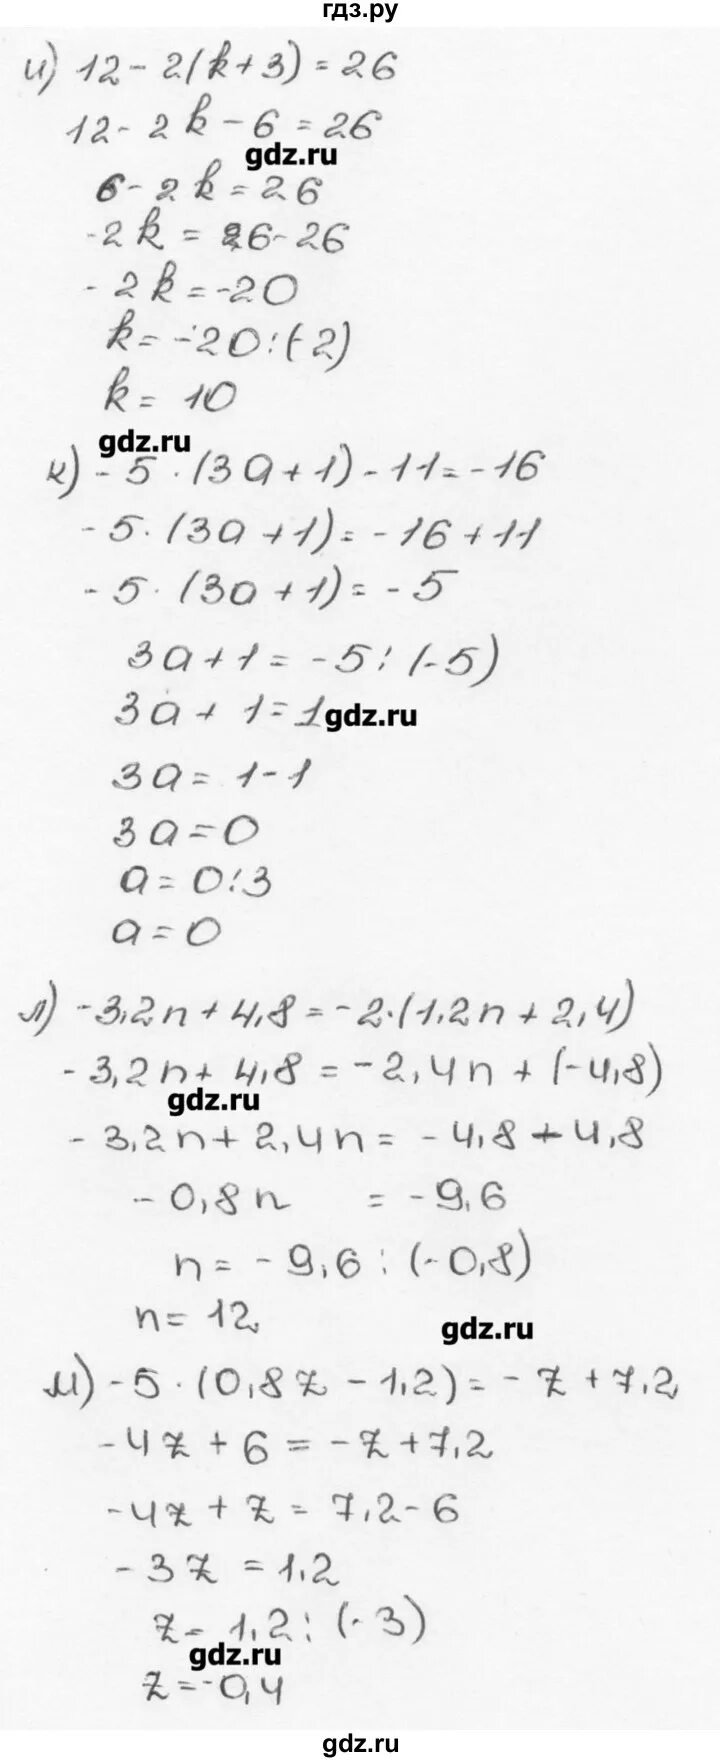 гдз.ру
и) 12 - 2(k+3) = 26
12 - 2k - 6 = 26
gdz.ru
6 - 2k = 26
-2k = 26 - 26
-2k = -20
k = -20:(-2)
k = 10
gdz.ru
к) -5·(3a+1) - 11 = -16
-5·(3a+1) = -16+11
-5·(3a+1) = -5
3a+1 = -5:(-5)
3a+1 = 1
gdz.ru
3a = 1-1
3a = 0
a = 0:3
a = 0
л) -3,2n + 4,8 = -2·(1,2n + 2,4)
-3,2n + 4,8 = -2,4n + (-4,8)
gdz.ru
-3,2n + 2,4n = -4,8 - 4,8
-0,8n = -9,6
n = -9,6 : (-0,8)
n = 12
gdz.ru
м) -5·(0,8z - 1,2) = -z + 7,2
-4z + 6 = -z + 7,2
-4z + z = 7,2 - 6
-3z = 1,2
z = 1,2 : (-3)
gdz.ru
z = -0,4
gdz.ru